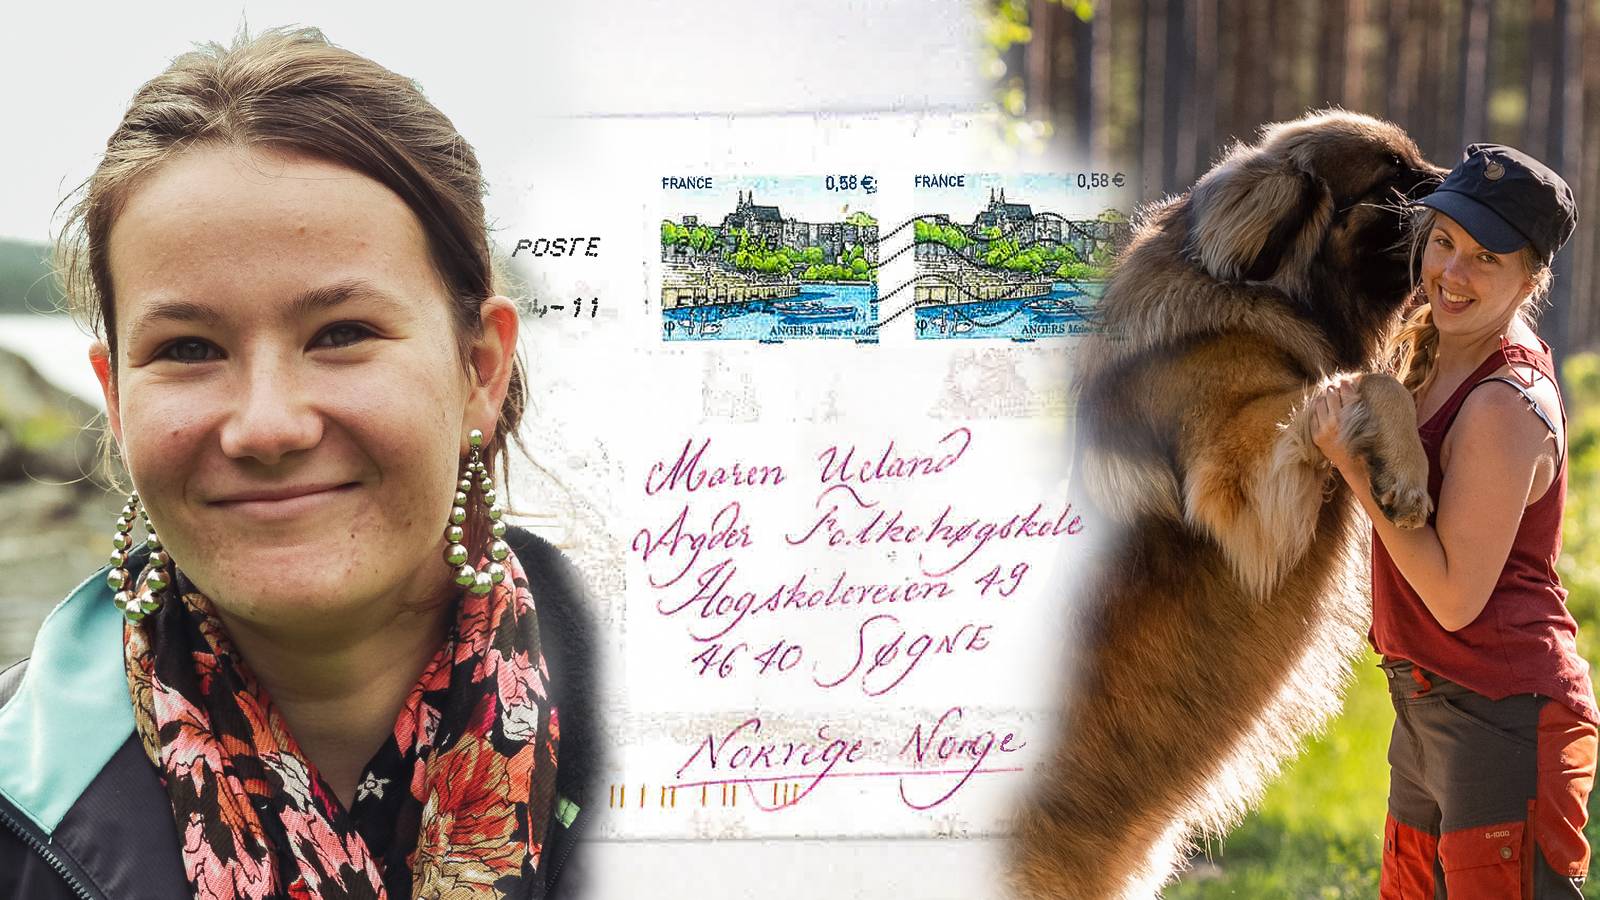 FRANCE 0,58 €
FRANCE 0,58 €
POSTE
-11
ANGERS Maine et Loire
ANGERS Maine et
Maren Ueland
Agder Folkehøgskole
Høgskoleveien 49
4640 SØGNE
Norvège Norge
G-1000